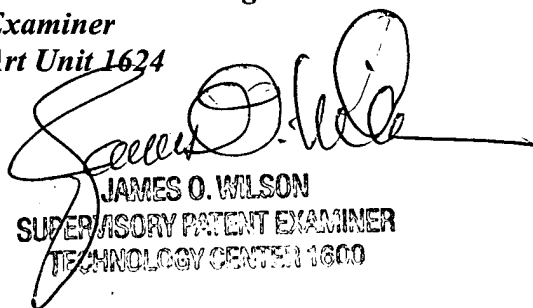 Examiner
Art Unit 1624
James O. Wilson
JAMES O. WILSON
SUPERVISORY PATENT EXAMINER
TECHNOLOGY CENTER 1600